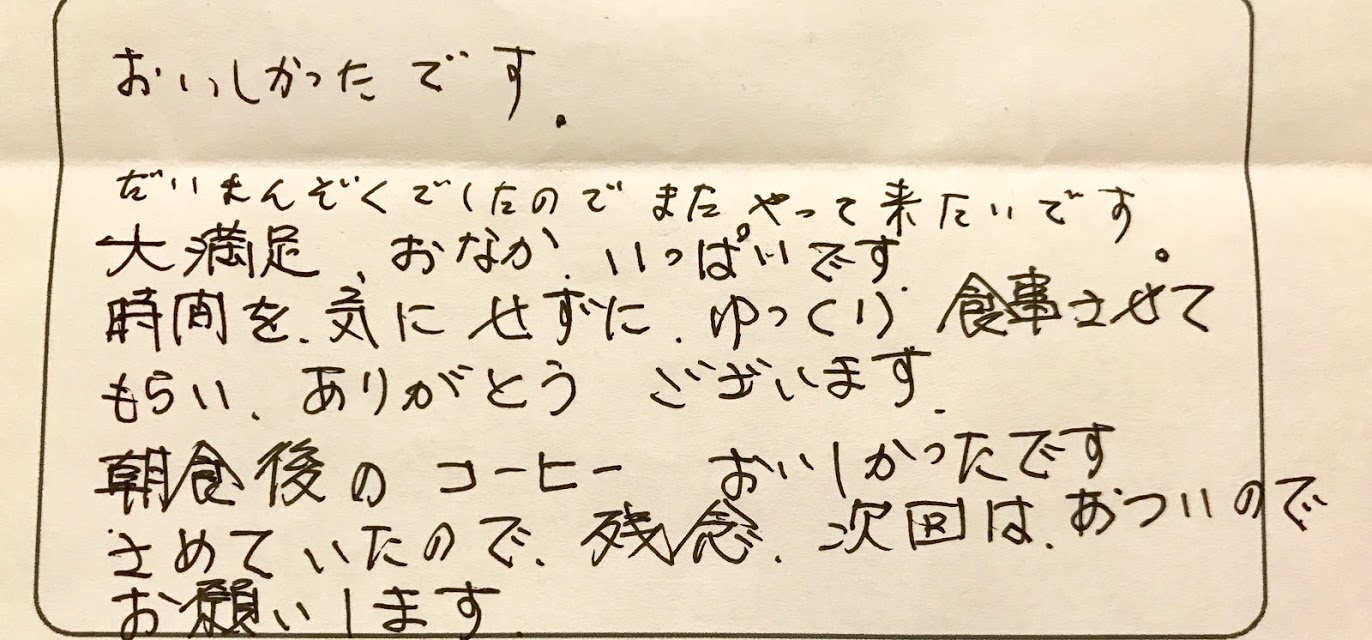 おいしかったです.
だいまんぞくでしたのでまた、やって来たいです。
大満足、おなか、いっぱいです
時間を、気にせずに、ゆっくり、食事させて
もらい、ありがとう ございます.
朝食後の コーヒー おいしかったです
さめていたので、残念、次回は、あついので
お願いします.